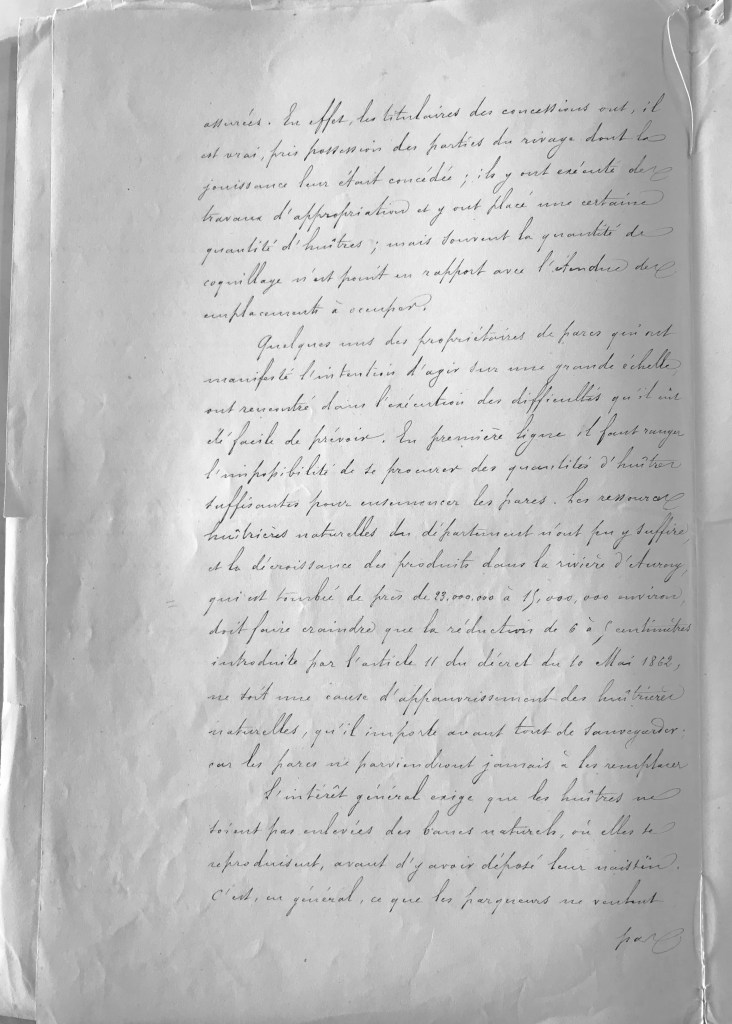 assurées. En effet, les titulaires des concessions ont, il
est vrai, pris possession des parties du rivage dont la
jouissance leur était concédée ; ils y ont exécuté des
travaux d'appropriation et y ont placé une certaine
quantité d'huîtres ; mais souvent la quantité de
coquillage n'est point en rapport avec l'étendue des
emplacements à occuper.
Quelques uns des propriétaires de parcs qui ont
manifesté l'intention d'agir sur une grande échelle,
ont rencontré dans l'exécution des difficultés qu'il eût
été facile de prévoir. En première ligne il faut ranger
l'impossibilité de se procurer des quantités d'huîtres
suffisantes pour ensemencer les parcs. Les ressources
huîtrières naturelles du département n'ont pu y suffire,
et la décroissance des produits dans la rivière d'Auray,
qui est tombée de près de 23,000,000 à 15,000,000 environ,
doit faire craindre que la réduction de 6 à 5 centimètres
introduite par l'article 11 du décret du 10 Mai 1862,
ne soit une cause d'appauvrissement des huîtrières
naturelles, qu'il importe avant tout de sauvegarder.
car les parcs ne parviendront jamais à les remplacer
L'intérêt général exige que les huîtres ne
soient pas enlevées des bancs naturels, où elles se
reproduisent, avant d'y avoir déposé leur naissin.
C'est, en général, ce que les parqueurs ne veulent
pas